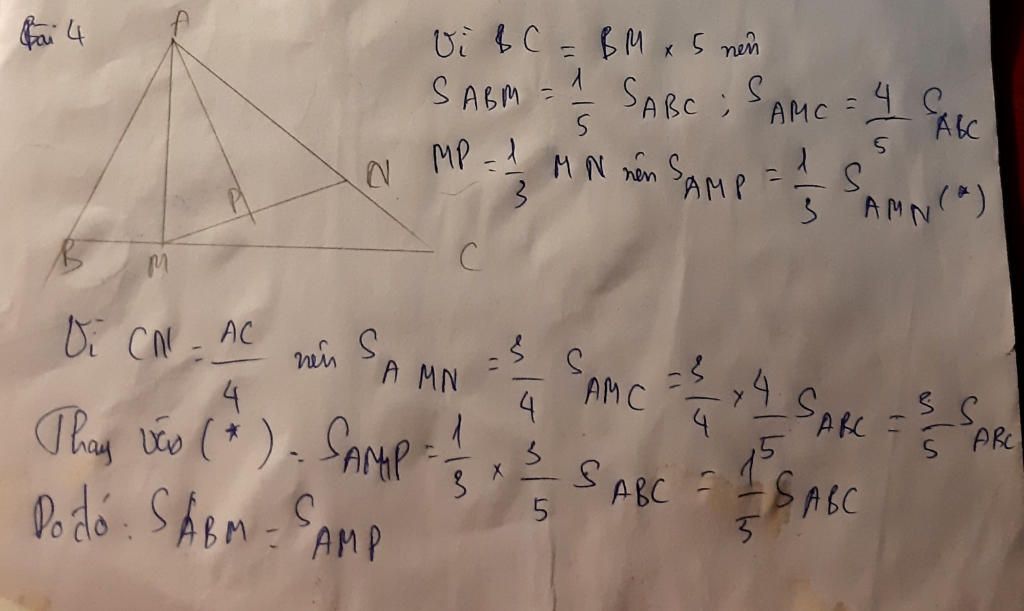 Bài 4
A
B
M
P
N
C
Vì BC = BM x 5 nên
S ABM = 1/5 S ABC ; S AMC = 4/5 S ABC
MP = 1/3 MN nên S AMP = 1/3 S AMN (*)
Vì CN = AC/4 nên S AMN = 3/4 S AMC = 3/4 x 4/5 S ABC = 3/5 S ABC
Thay vào (*). S AMP = 1/3 x 3/5 S ABC = 1/5 S ABC
Do đó: S ABM = S AMP